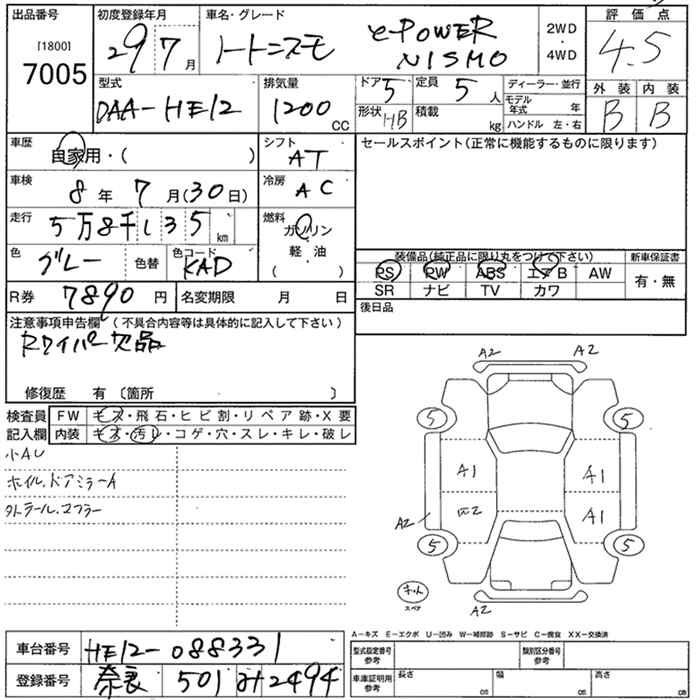 出品番号 初度登録年月 車名・グレード 評価点
[1800]
7005
29 7月 ノートニスモ e-POWER NISMO 2WD・4WD 4.5
型式 排気量 ドア 5 定員 5人 ディーラー・並行 外装 内装
DAA-HE12 1200 CC 形状 HB 積載 kg モデル年式 年 B B
ハンドル 左・右
車歴 自家用・( ) シフト AT セールスポイント(正常に機能するものに限ります)
車検 8年 7月(30日) 冷房 AC
走行 5万8千135 km 燃料 ガソリン
軽・油
( ・ )
色 グレー 色替 色コード KAD 装備品(純正品に限り丸をつけて下さい) 新車保証書
PS PW ABS エアB AW 有・無
SR ナビ TV カワ
R券 7890円 名変期限 月 日 後日品
注意事項申告欄(不具合内容等は具体的に記入して下さい)
Rワイパー欠品
修復歴 有〔箇所 〕
検査員 FW キズ・飛石・ヒビ割・リペア跡・X要
記入欄 内装 キズ・汚レ・コゲ・穴・スレ・キレ・破レ
小AU
ホイル.ドアミラーA
マフラー
A2 A2
5 5
A1 A1
A2 A1
5 5
スペア
A2
A-キズ E-エクボ U-凹み W-補修跡 S-サビ C-腐食 XX-交換済
車台番号 HE12-088331 型式指定番号 参考 類別区分番号 参考
登録番号 奈良 501 み2494 車庫証明用 参考 長さ cm 幅 cm 高さ cm